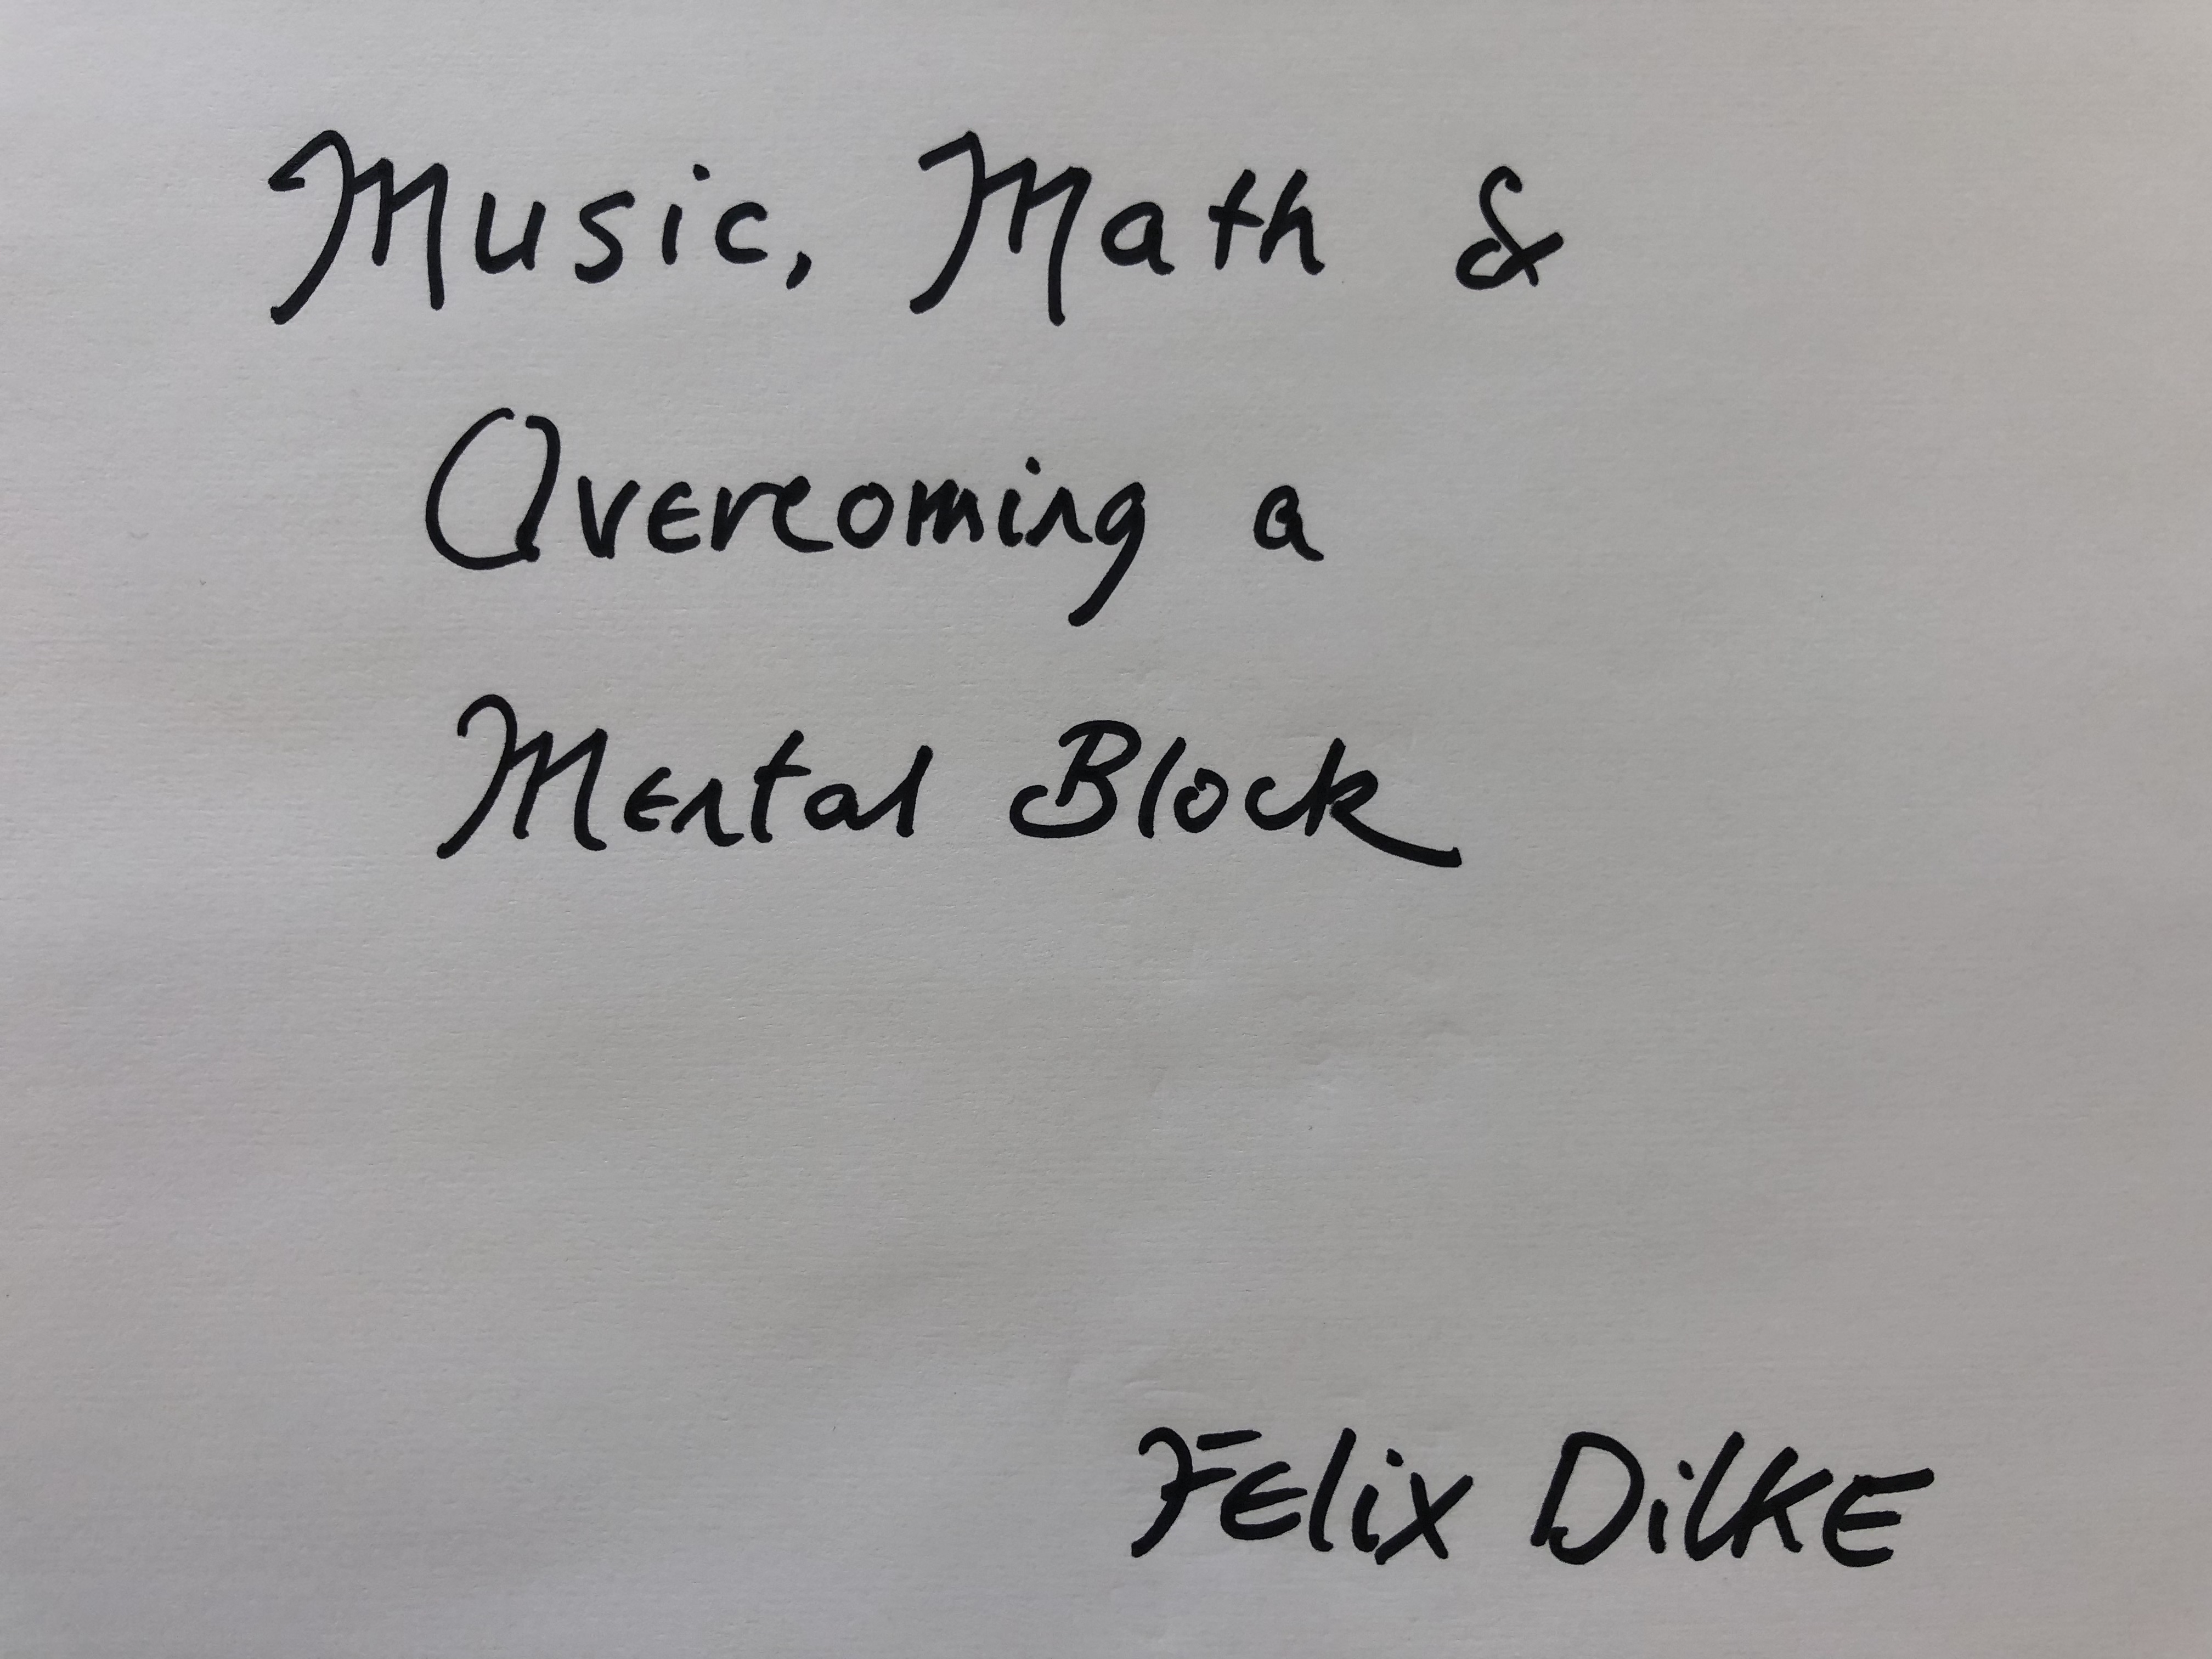 Music, Math &
Overcoming a
Mental Block
Felix Dilke